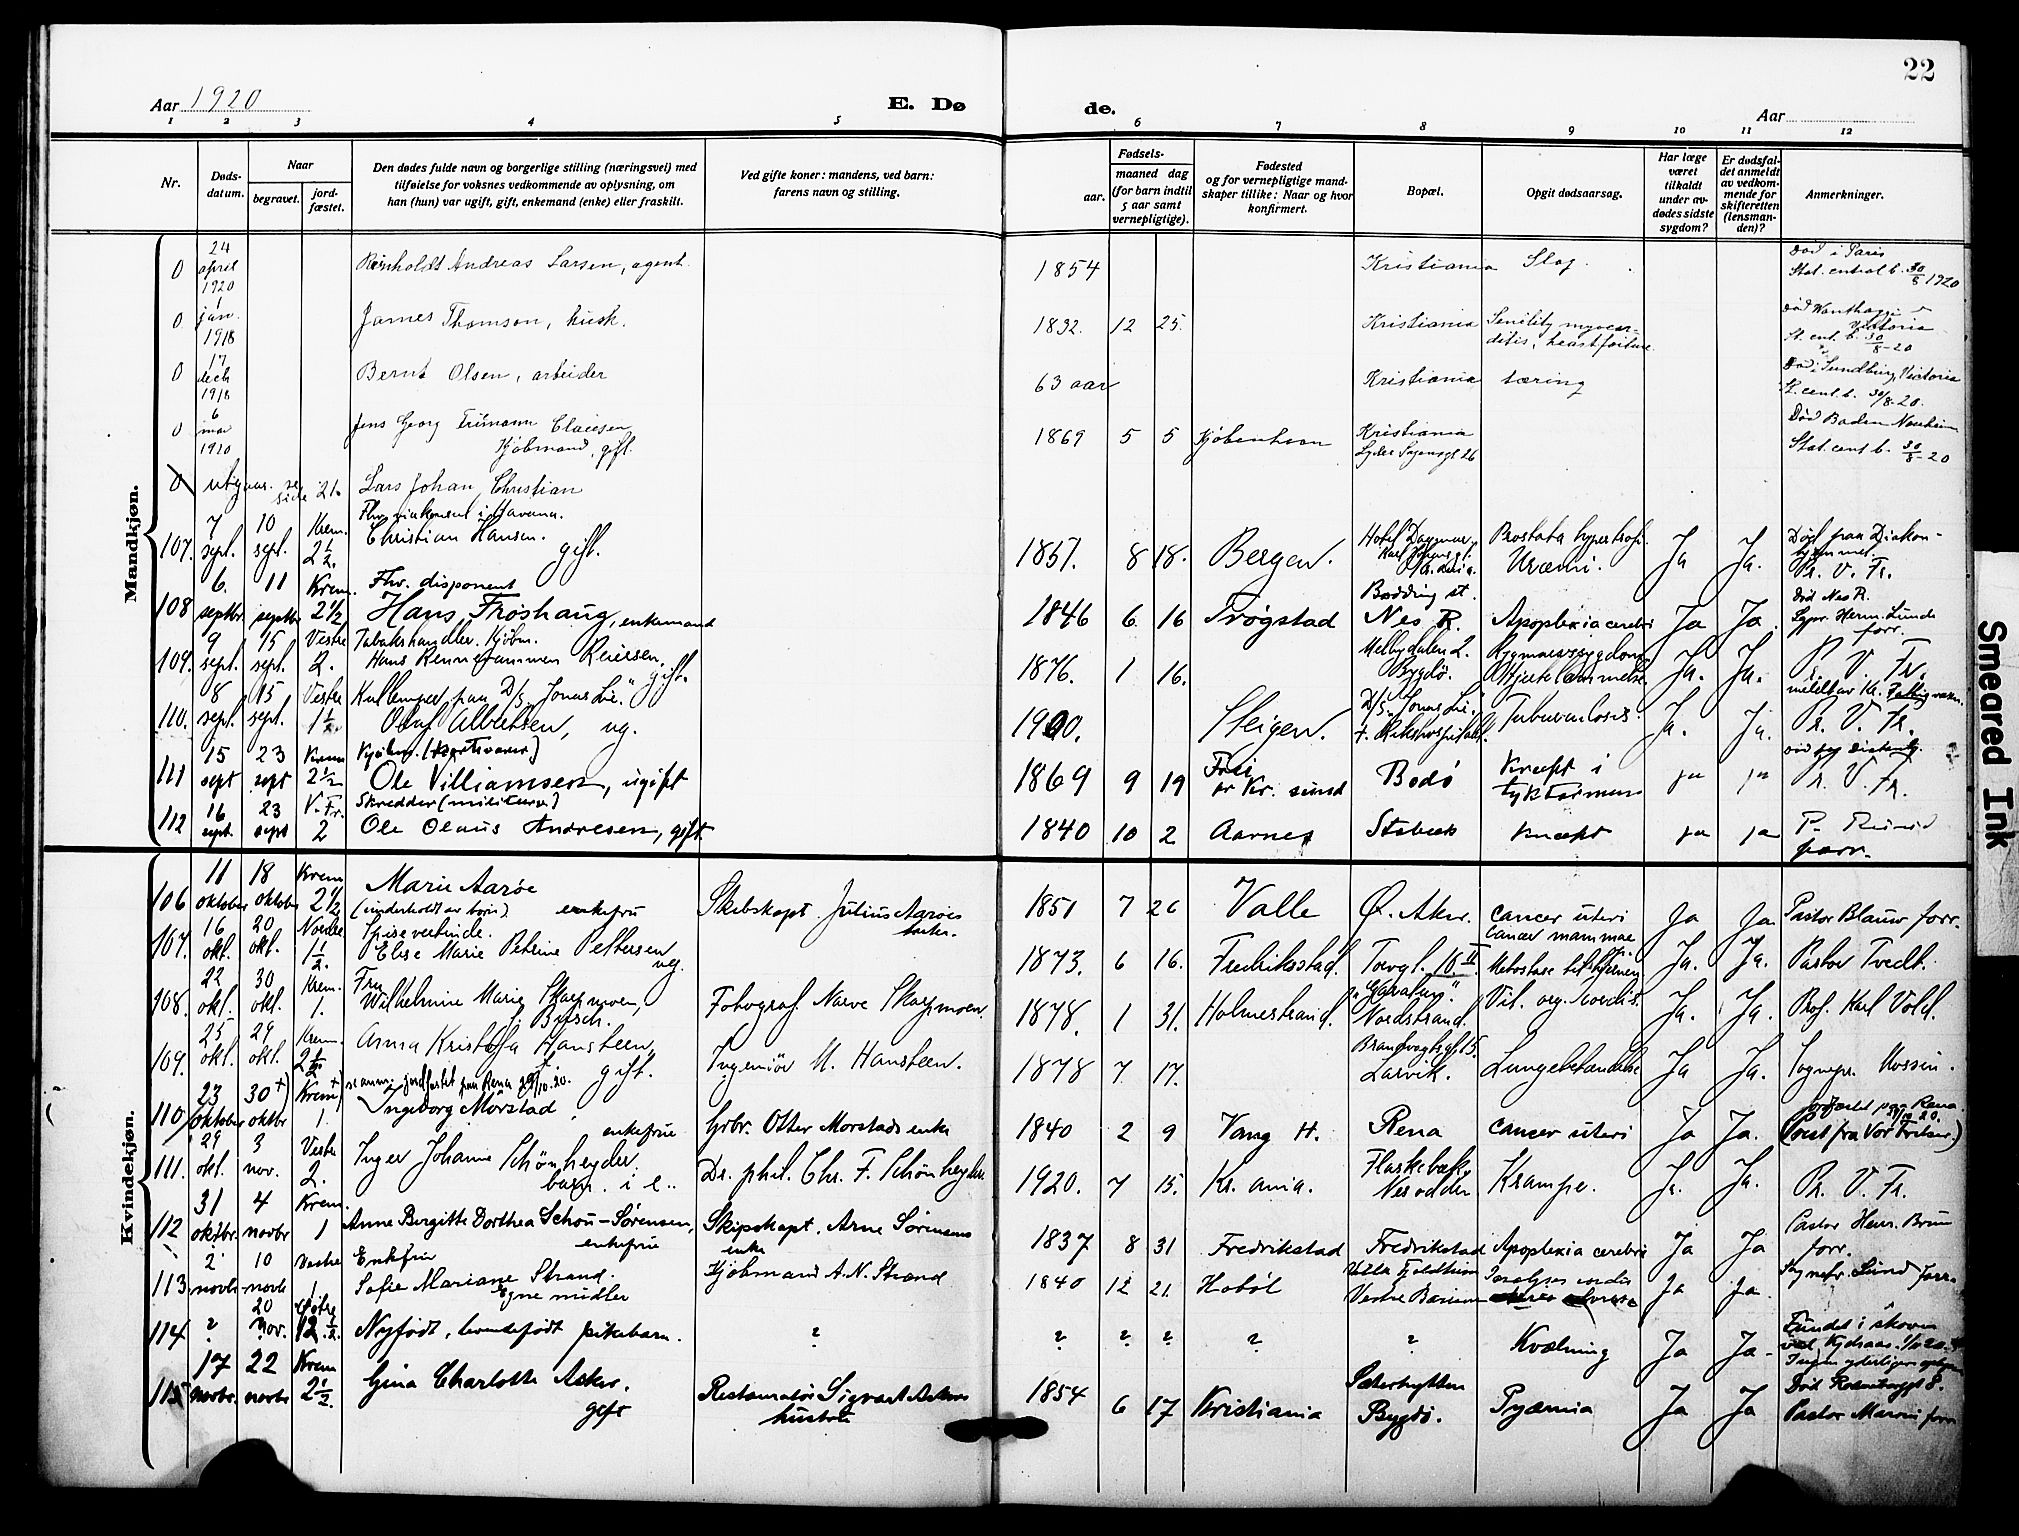 22
Aar 1920
E. Dø
de.
Aar
1 2 3 4 5 6 7 8 9 10 11 12
Nr.
Døds-
datum.
Naar
begravet.
jord-
fæstet.
Den dødes fulde navn og borgerlige stilling (næringsvei) med
tilføielse for voksnes vedkommende av oplysning, om
han (hun) var ugift, gift, enkemand (enke) eller fraskilt.
Ved gifte koner: mandens, ved barn:
farens navn og stilling.
Fødsels-
aar.
maaned dag
(for barn indtil
5 aar samt
vernepligtige).
Fødested
og for vernepligtige mand-
skaper tillike: Naar og hvor
konfirmert.
Bopæl.
Opgit dødsaarsag.
Har læge
været
tilkaldt
under av-
dødes sidste
sygdom?
Er dødsfal-
det anmeldt
av vedkom-
mende for
skifteretten
(lensman-
den)?
Anmerkninger.
Mandkjøn.
0 24 april 1920 Reinholdt Andreas Larsen, agent 1854 Kristiania Slag. Død i Paris
Stat. central b. 30/8 1920
0 1 jan. 1918 James Thomson, 1832. 12 25. Kristiania Senility myocar-
ditis, heartfailure død Wonthaggi Victoria
St. cent. b. 30/8-20
0 17 1918 Bernt Olsen, arbeider 63 aar Kristiania tæring Victoria
St. cent. b. 30/8-20.
0 6 mar 1920 Jens Georg Clausen
Kjøbmand, gift. 1869 5 5 Kjøbenhavn Kristiania
Lyder Sagensgt 26 Død Baden Nauheim
Stat. cent b. 30/8-20
0 utgaar. se side 21. Lars Johan Christian
107. 7 sept. 10 sept. Krem. 2 1/2. Fhv. i Havana.
Christian Hansen.
gift. 1857. 8 18. Bergen. Hotel Dagmar,
Karl Johans gt.
Kr.ania. Prostata hypertrofi.
Uræmi. Ja Ja. Død paa Diakon-
hjemmet.
R. V. Fr.
108 6. septbr. 11 septbr Krem. 2 1/2 Fhv. disponent
Hans Frøshaug, enkemand 1846 6 16 Trøgstad Bødding st.
Nes R. Apoplexia cerebri Ja Ja. død Nes R.
Sgpr. Herm. Lunde
forr.
109. 9 sept. 15 sept. Vestre 2. Tobakshandler. Kjøbm.
Hans Reiersen, gift. 1876. 1 16. Melbydalen 2.
Bygdø. Rygmarvssygdom
Hjertelammelse. Ja. Ja. R. V. Fr.
110. 8 sept. 15 sept. Vestre 1 1/2. Kullemper paa D/S "Jonas Lie."
Olaf Albertsen, ug. 1900. Steigen. D/S. "Jonas Lie."
f. Rikshospitalet. Tuberculosis. Ja. Ja. R. V. Fr.
111 15 sept 23 sept Krem 2 1/2 Kjøbm. (kortevarer)
Ole Villiamsen, ugift 1869 9 19 Frei
pr Kr. sund Bodø kræft i
tyktarmen ja ja R. V. Fr.
112 16 sept. 23 sept V. Fr. 2 Skredder (militær)
Ole Olaus Andresen, gift. 1840 10 2 Aarnes Stabæk kræft ja ja P.
forr.
Kvindekjøn.
106 11 oktober 18 oktober Krem 2 1/2 Marie Aarøe
(underholdt av børn) enkefru Skibskapt. Julius Aarøes
enke. 1851 7 26 Valle Ø. Aker. cancer uteri Ja Ja Pastor Blauw forr.
107. 16 okt. 20 okt. Nordre 1 1/2. Spisevertinde.
Else Marie Petrine Pettersen
ug. 1873. 6 16. Fredriksstad. Torvgt. 10 II. Cancer mammae
Metastase til Ja. Ja. Pastor Tvedt.
108. 22 okt. 30 okt. Krem. 1. Fru
Wilhelmine Marie Skarpmoen,
f. Bytsch. Fotograf Narve Skarpmoen. 1878. 1 31. Holmestrand.
Nordstrand. Vit. org. cordis. Ja. Ja. Prof. Karl Vold.
109. 25 okt. 29 okt. Krem. 2 1/2 Anna Kristofa Hansteen,
gift. Ingeniør M. Hansteen. 1878 7 17. Brandvagtsgt 15.
Larvik. Lungebetændelse Ja Ja. Sognepr. Mossin.
110 23 oktober 30+) oktbr Krem +) 1. +) jordfæstet paa Rena 29/10.20.
Ingeborg Mørstad,
enkefrue Grbr. Otter Mørstads enke 1840 2 9 Vang H. Rena cancer uteri Ja Ja. jordfæstet paa Rena
29/10 20.
(Prest fra Vor Frelser.)
111. 29 okt. 3 nov. Vestre 2. Inger Johanne Schönheyder.
barn. i e.. Dr. phil. Chr. F. Schönheyder 1920. 7 15. Kr. ania. Flaskebæk,
Nesodden Krampe. Ja. Ja. R. V. Fr.
112 31 oktbr. 4 novbr Krem. 1 Anne Bergitte Dorthea Schou-Sørensen,
enkefrue Skipskapt. Arne Sørensens
enke 1837 8 31 Fredrikstad Fredrikstad Apoplexia cerebri Ja Ja Pastor Henr. Brun
forr.
113 2 novbr 10 novbr Vestre 1 Enkefru
Sofie Mariane Strand.
Egne midler Kjøbmand A. N. Strand 1840 12 21. Hobøl Villa Fjeldheim
Vestre Bærum Paralyses cordis Ja Ja. Sognepr. Lund forr.
114 ? 20 nov. Østre 12 1/2. Nyfødt, levendefødt pikebarn. ? ? ? ? ? ? Kvælning Ja Ja. Fundet i skoven
115 17 novbr. 22 novbr Krem 2 1/2. Gina Charlotte Asker.
gift Restauratør Sigvart Askers
hustru 1854 6 17 Kristiania Sæterhytten
Bygdø. Pyæmia Ja Ja Død Rosenborggt 8.
Pastor forr
Smeared Ink